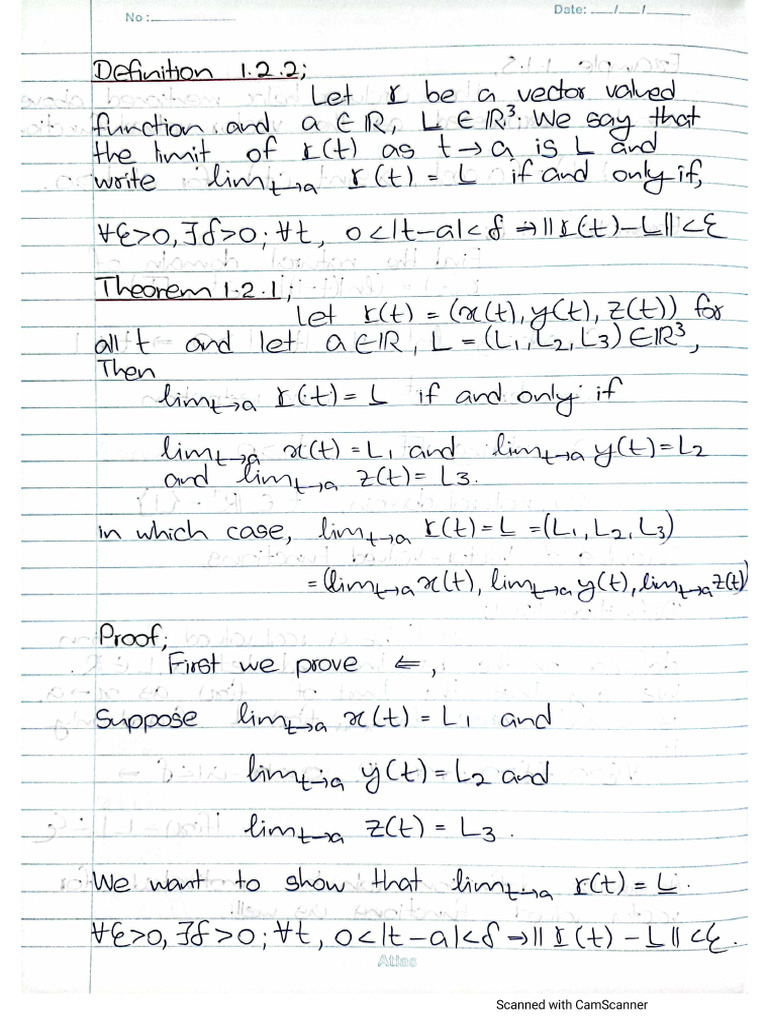 No :
Date: __/__/__
Definition 1.2.2;
Let r be a vector valued
function and a ∈ ℝ, L ∈ ℝ³. We say that
the limit of r(t) as t→a is L and
write lim t→a r(t) = L if and only if,
∀ε>0, ∃δ>0; ∀t, 0<|t-a|<δ ⇒ ||r(t)-L||<ε
Theorem 1.2.1;
Let r(t) = (x(t), y(t), z(t)) for
all t and let a ∈ ℝ, L = (L₁, L₂, L₃) ∈ ℝ³,
Then
lim t→a r(t) = L if and only if
lim t→a x(t) = L₁ and lim t→a y(t) = L₂
and lim t→a z(t) = L₃.
in which case, lim t→a r(t) = L = (L₁, L₂, L₃)
= (lim t→a x(t), lim t→a y(t), lim t→a z(t))
Proof;
First we prove ⇐,
Suppose lim t→a x(t) = L₁ and
lim t→a y(t) = L₂ and
lim t→a z(t) = L₃.
We want to show that lim t→a r(t) = L.
∀ε>0, ∃δ>0; ∀t, 0<|t-a|<δ ⇒ ||r(t) - L|| <ε.
Atlas
Scanned with CamScanner